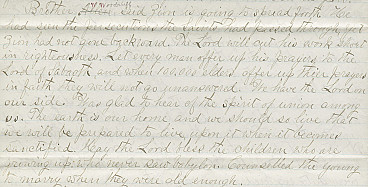 Said Zion is going to spread forth. We
had seen the persecutions the Saints had passed through, yet
Zion had not gone backward. The Lord will cut his work short
in righteousness. Let every man offer up his prayers to the
Lord of Sabaoth, and when elders offer up their prayers
in faith they will not go unanswered. We have the Lord on
our side. Was glad to hear of the spirit of union among
us. The earth is our home and we should so live that
we will be prepared to live upon it when it becomes
sanctified. May the Lord bless the children who are
growing up who never saw babylon. Counselled the young
to marry when they were old enough.